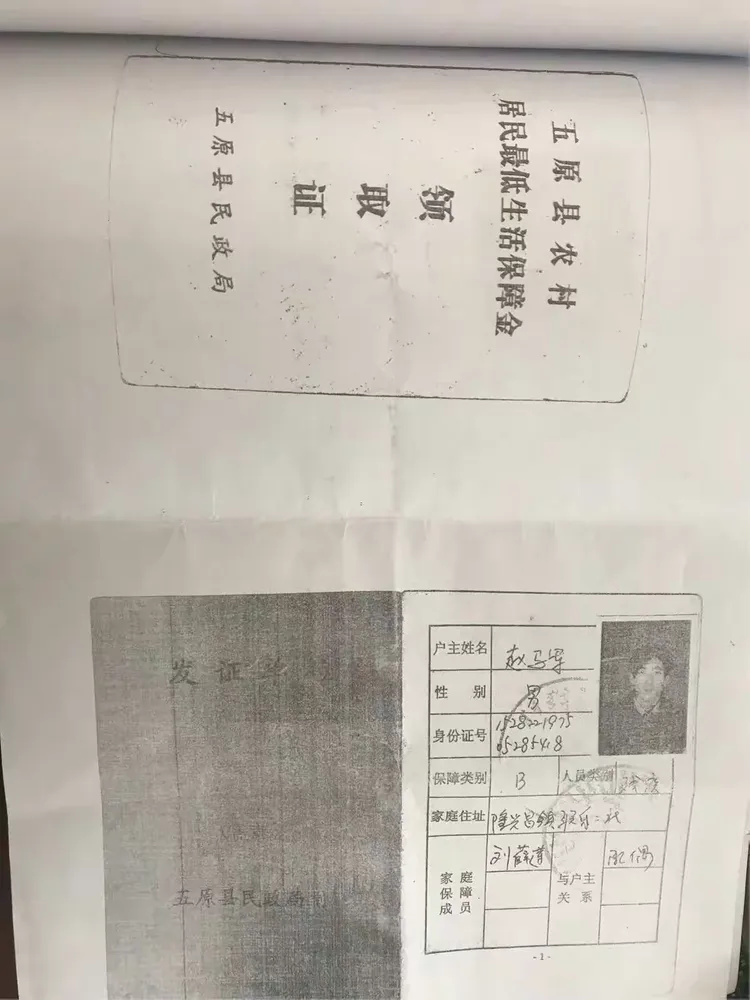 五原县农村
居民最低生活保障金
领
取
证
五原县民政局
发证
五原县民政局
户主姓名
性 别 男
身份证号 152822197505285418
保障类别 B 人员类别
家庭住址 隆兴昌镇 二社
家庭保障成员 刘 与户主关系 配偶
- 1 -